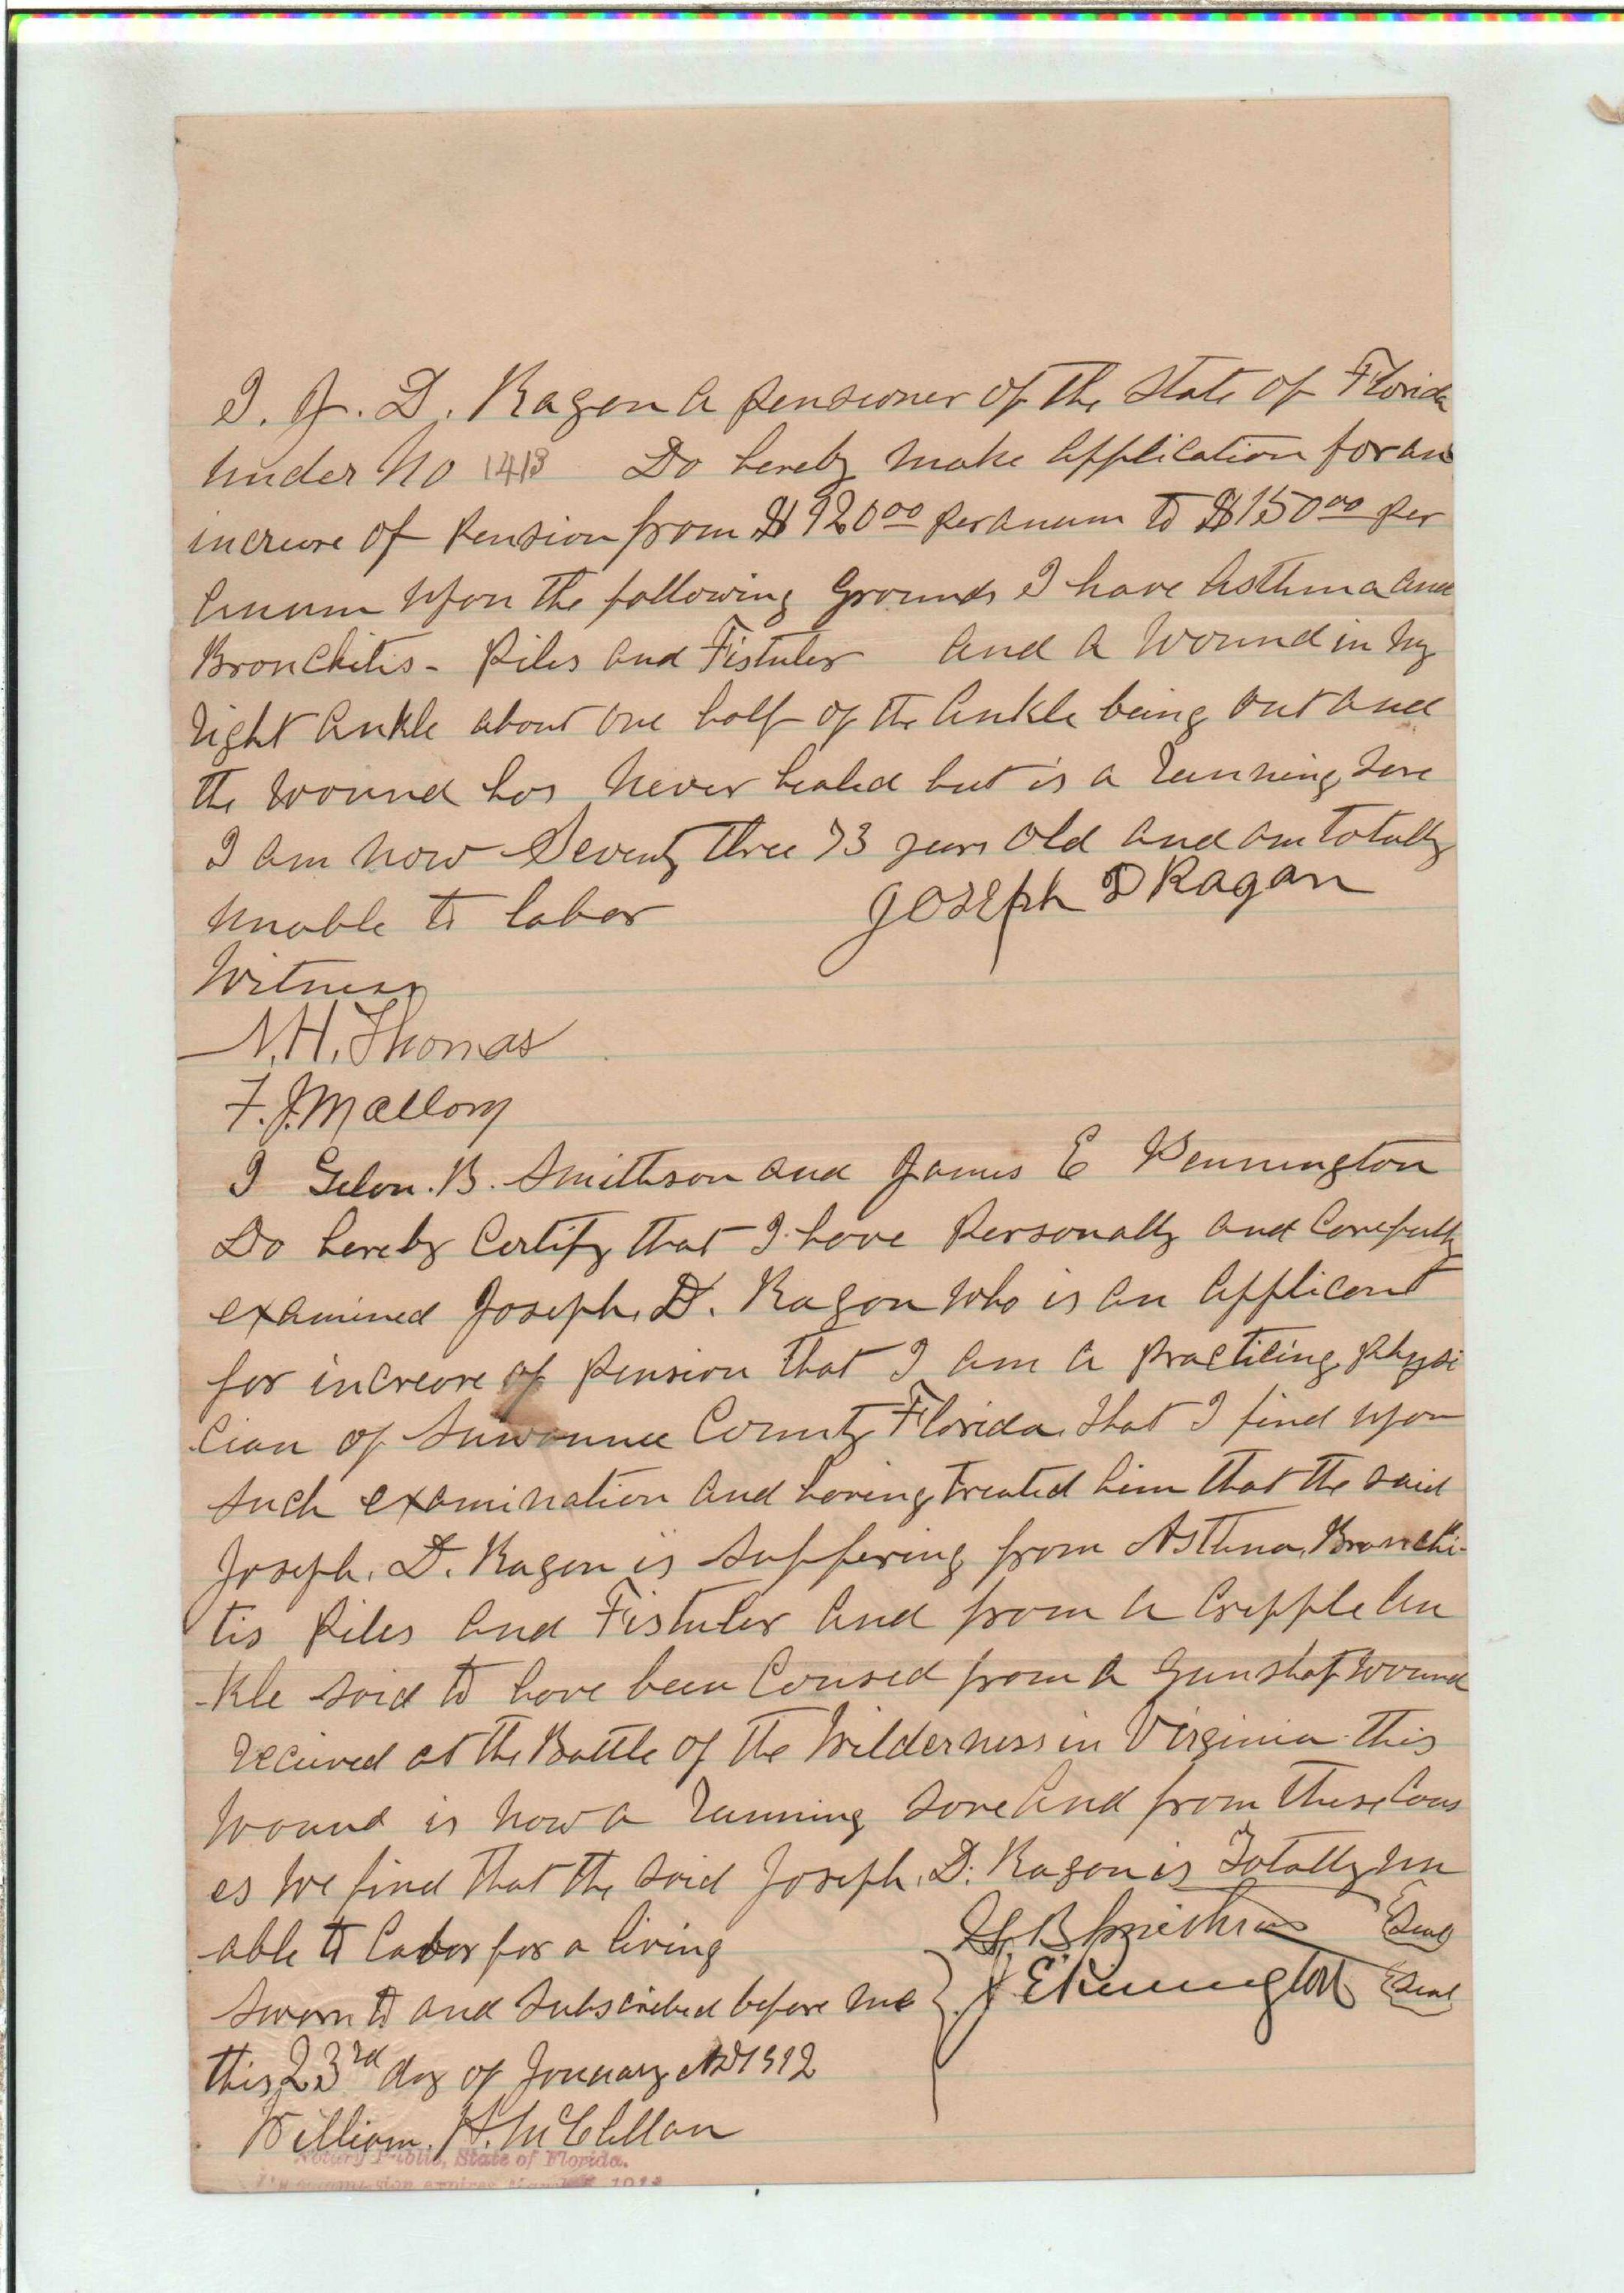 I. J. D. Ragon a pensioner of the State of Florida
under No 1413 Do hereby make application for an
increase of Pension from $120.00 per anum to $150.00 per
anum upon the following Grounds I have Asthma and
Bronchitis - Piles and Fistuler and a Wound in my
right ankle about one half of the ankle being out and
the wound has never healed but is a running sore
I am now Seventy three 73 years old and am totally
unable to labor Joseph D Ragan
Witness
N. H. Thomas
F. J. Mallory
I Gelon. B. Smithson and James E Pennington
Do hereby Certify that I have Personally and Carefully
examined Joseph. D. Ragon who is an applicant
for increase of pension that I am a practicing physi
cian of Suwannee County Florida. that I find upon
such examination and having treated him that the said
Joseph. D. Ragon is suffering from Asthma, Bronchi-
tis Piles and Fistuler and from a cripple an
-kle said to have been caused from a gunshot wound
received at the Battle of the Wilderness in Virginia this
wound is now a running sore and from these caus
es we find that the said Joseph. D. Ragon is Totally un
able to labor for a living G. B. Smithson Seal
Sworn to and subscribed before me J. E. Pennington Seal
this 23rd day of January AD 1912
William. H. McClellan
Notary Public, State of Florida.